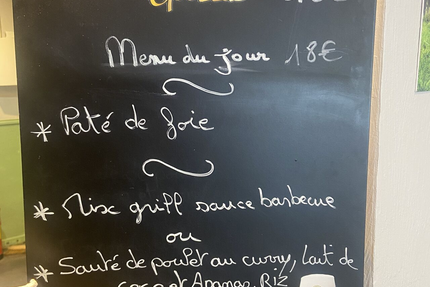 Menu du jour 18€
* Paté de foie
* Mix grill sauce barbecue
ou
* Sauté de poulet au curry, lait de
coco et Ananas, Riz